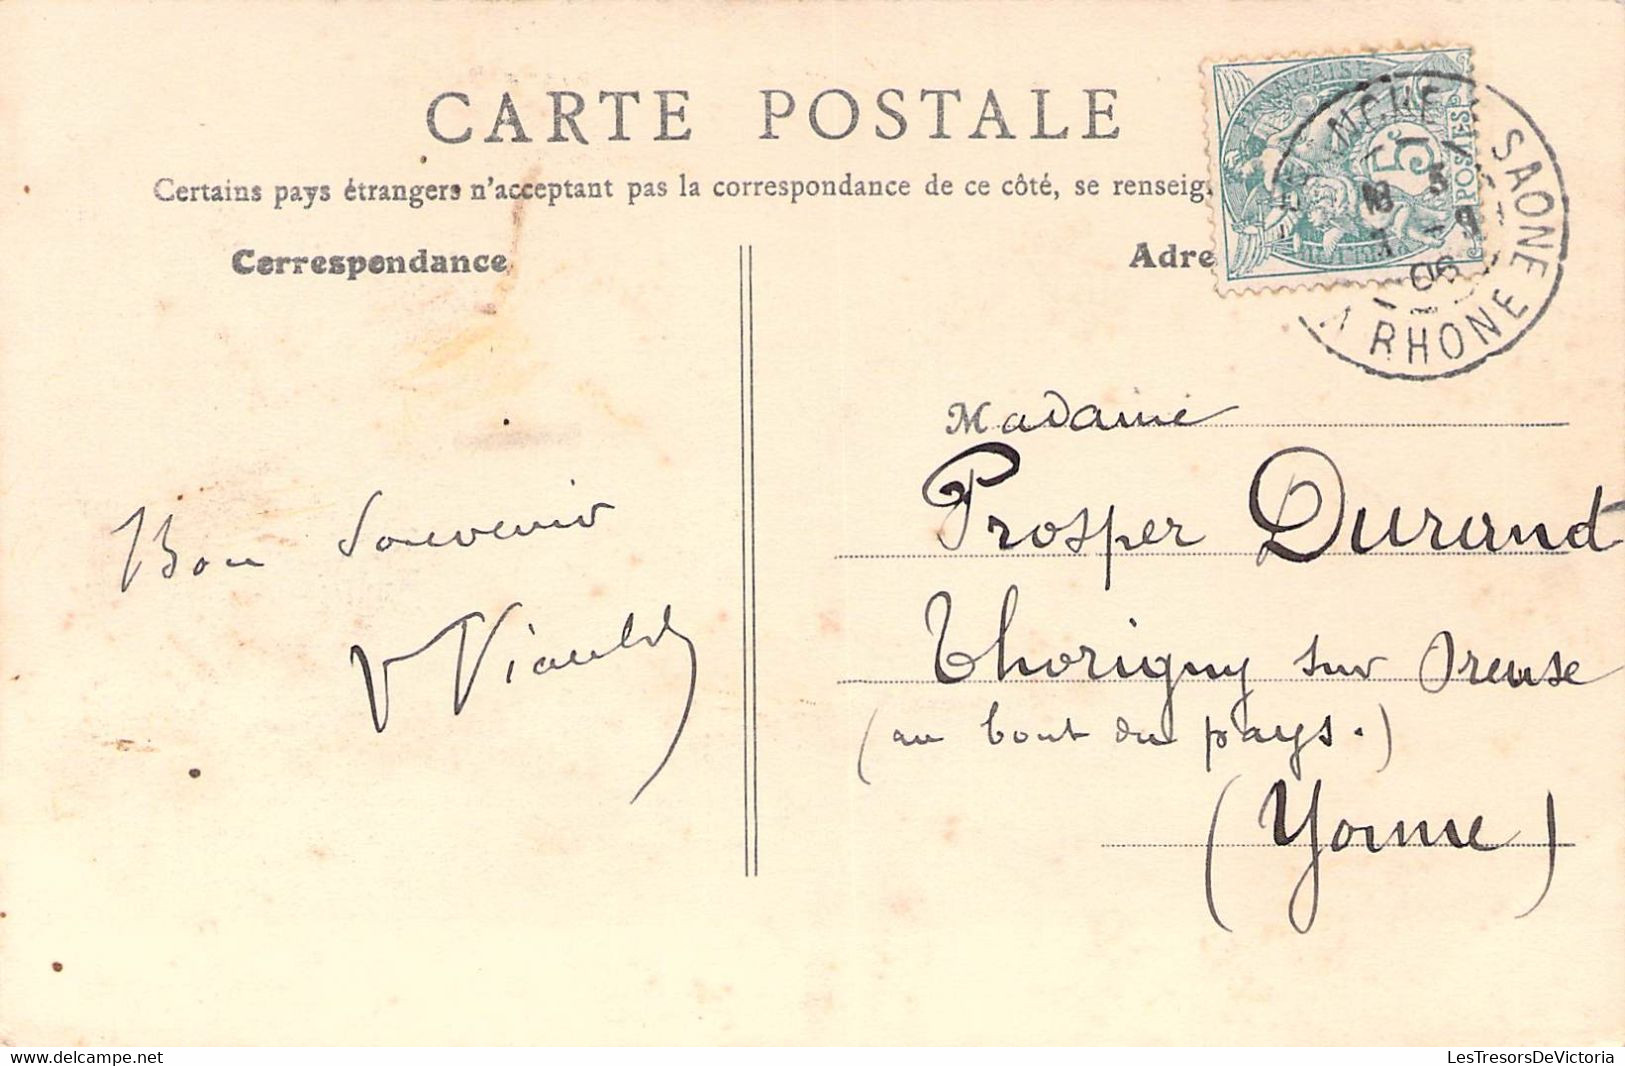 CARTE POSTALE
Certains pays étrangers n'acceptant pas la correspondance de ce côté, se renseig
Correspondance
Adre
POSTES
SAONE
RHONE
06
5
Madame
Prosper Durand
Thorigny sur Oreuse
(au bout du pays.)
(Yonne)
Bon Souvenir
V Viault
Les Tresors De Victoria sur Delcampe.net
LesTresorsDeVictoria